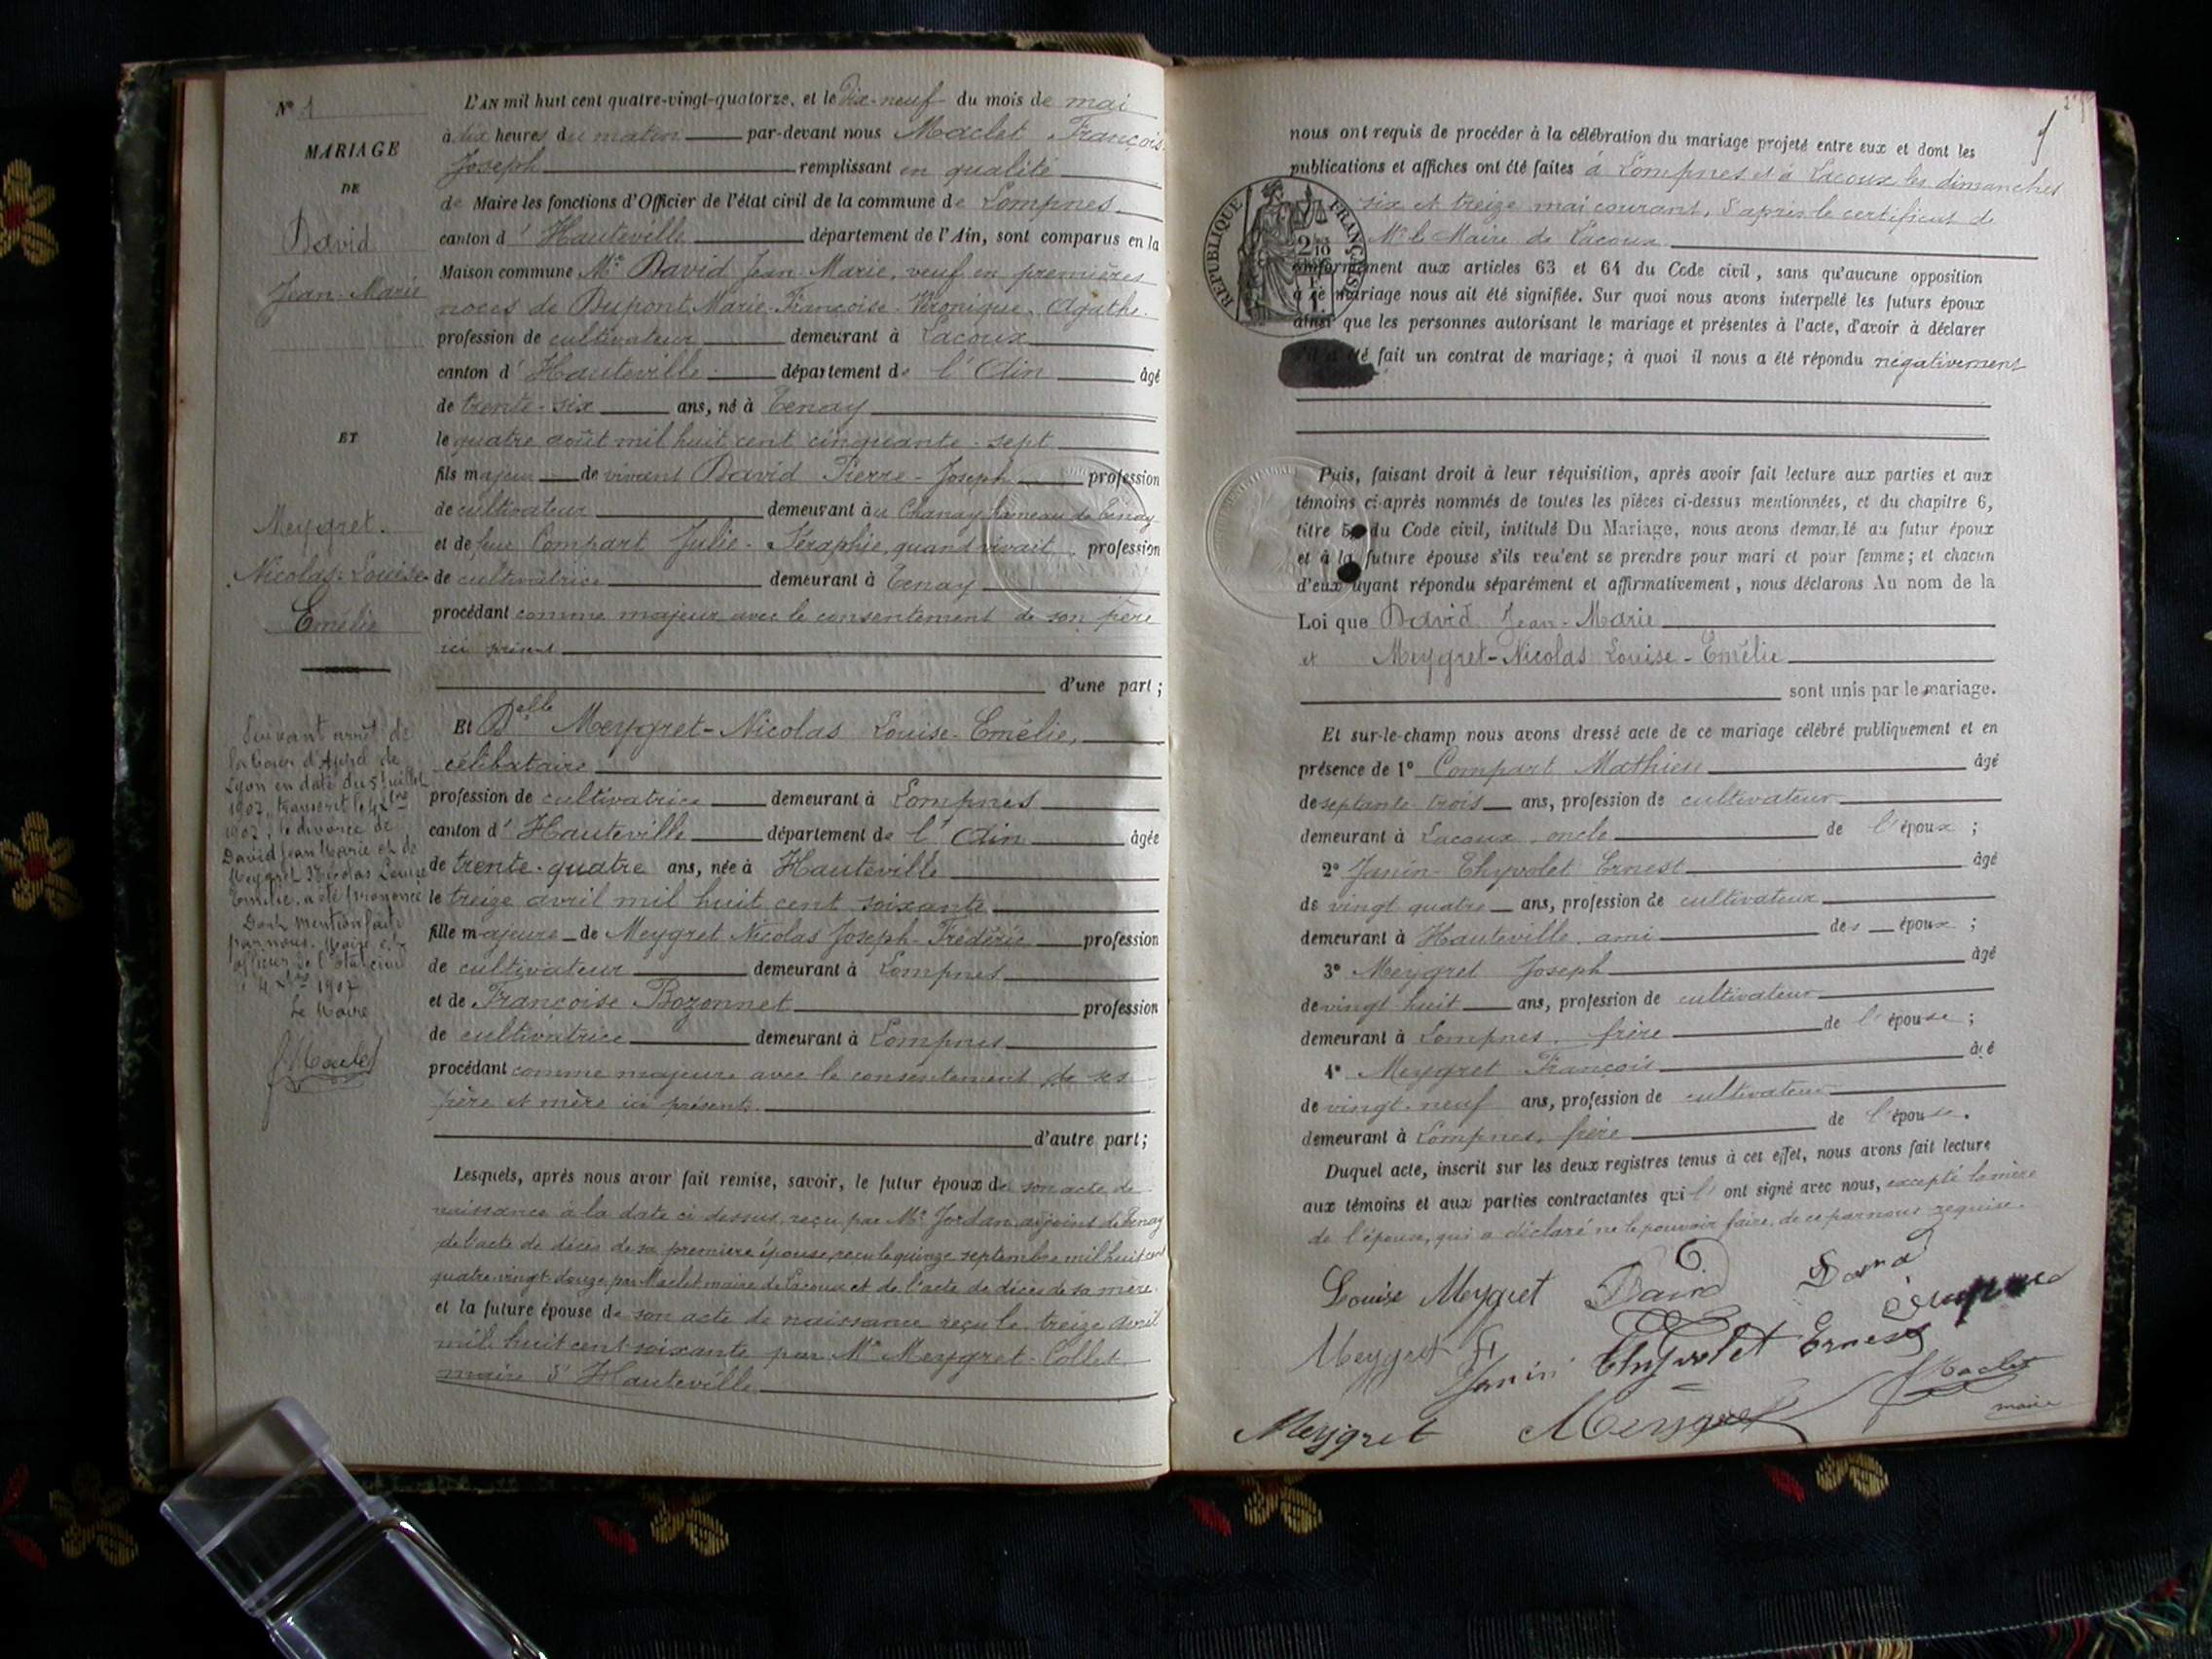 N° 1
MARIAGE
DE
David
Jean-Marie
ET
Meygret-
Nicolas Louise
Emélie
Suivant arrêt de
la Cour d'Appel de
Lyon en date du 5 juillet
1907, transcrit le 4 Xbre
1907, le divorce de
David Jean Marie et de
Meygret Nicolas Louise
Emélie, a été prononcé
Dont mention faite
par nous, Maire et
officier de l'état civil
4 Xbre 1907
Le Maire
J Maclet
L'AN mil huit cent quatre-vingt-quatorze, et le Dix-neuf du mois de mai
à dix heures du matin par-devant nous Maclet François
Joseph remplissant en qualité
de Maire les fonctions d'Officier de l'état civil de la commune de Lompnes
canton d'Hauteville département de l'Ain, sont comparus en la
Maison commune Mr David Jean-Marie, veuf en premières
noces de Dupont Marie-Françoise-Véronique-Agathe
profession de cultivateur demeurant à Lacoux
canton d'Hauteville département de l'Ain âgé
de trente-six ans, né à Tenay
le quatre août mil huit cent cinquante-sept
fils majeur de vivant David Pierre-Joseph profession
de cultivateur demeurant au Chanay hameau de Tenay
et de feue Compart Julie-Séraphie, quand vivait profession
de cultivatrice demeurant à Tenay
procédant comme majeur avec le consentement de son père
ici présent
d'une part;
Et Delle Meygret-Nicolas Louise-Emélie,
célibataire
profession de cultivatrice demeurant à Lompnes
canton d'Hauteville département de l'Ain âgée
de trente-quatre ans, née à Hauteville
le treize avril mil huit cent soixante
fille majeure de Meygret Nicolas Joseph-Frédéric profession
de cultivateur demeurant à Lompnes
et de Françoise Bozonnet profession
de cultivatrice demeurant à Lompnes
procédant comme majeure avec le consentement de ses
père et mère ici présents
d'autre part;
Lesquels, après nous avoir fait remise, savoir, le futur époux de son acte de
naissance à la date ci dessus, reçu par Mr Jordan adjoint de Tenay
de l'acte de décès de sa première épouse, reçu le quinze septembre mil huit cent
quatre-vingt-douze par Maclet maire de Lacoux et de l'acte de décès de sa mère.
et la future épouse de son acte de naissance reçu le treize avril
mil huit cent soixante par Mr Meygret-Collet
maire d'Hauteville
nous ont requis de procéder à la célébration du mariage projeté entre eux et dont les
publications et affiches ont été faites à Lompnes et à Lacoux les dimanches
six et treize mai courant, d'après le certificat de
Mr le Maire de Lacoux
RÉPUBLIQUE FRANÇAISE
conformément aux articles 63 et 64 du Code civil, sans qu'aucune opposition
à ce mariage nous ait été signifiée. Sur quoi nous avons interpellé les futurs époux
ainsi que les personnes autorisant le mariage et présentes à l'acte, d'avoir à déclarer
s'il a été fait un contrat de mariage; à quoi il nous a été répondu négativement
Puis, faisant droit à leur réquisition, après avoir fait lecture aux parties et aux
témoins ci-après nommés de toutes les pièces ci-dessus mentionnées, et du chapitre 6,
titre 5, du Code civil, intitulé Du Mariage, nous avons demandé au futur époux
et à la future épouse s'ils veulent se prendre pour mari et pour femme; et chacun
d'eux ayant répondu séparément et affirmativement, nous déclarons Au nom de la
Loi que David Jean-Marie
et Meygret-Nicolas Louise-Emélie
sont unis par le mariage.
Et sur-le-champ nous avons dressé acte de ce mariage célébré publiquement et en
présence de 1° Compart Mathieu âgé
de septante trois ans, profession de cultivateur
demeurant à Lacoux, oncle de l'époux;
2° Janin-Thyvolet Ernest âgé
de vingt quatre ans, profession de cultivateur
demeurant à Hauteville, ami des époux;
3° Meygret Joseph âgé
de vingt-huit ans, profession de cultivateur
demeurant à Lompnes, frère de l'épouse;
4° Meygret François âgé
de vingt-neuf ans, profession de cultivateur
demeurant à Lompnes, frère de l'épouse.
Duquel acte, inscrit sur les deux registres tenus à cet effet, nous avons fait lecture
aux témoins et aux parties contractantes qui l'ont signé avec nous, excepté la mère
de l'épouse, qui a déclaré ne le pouvoir faire, de ce par nous requise.
Louise Meygret David David
Meygret F
Janin Thyvolet Ernest
J Maclet
maire
Meygret Meygret